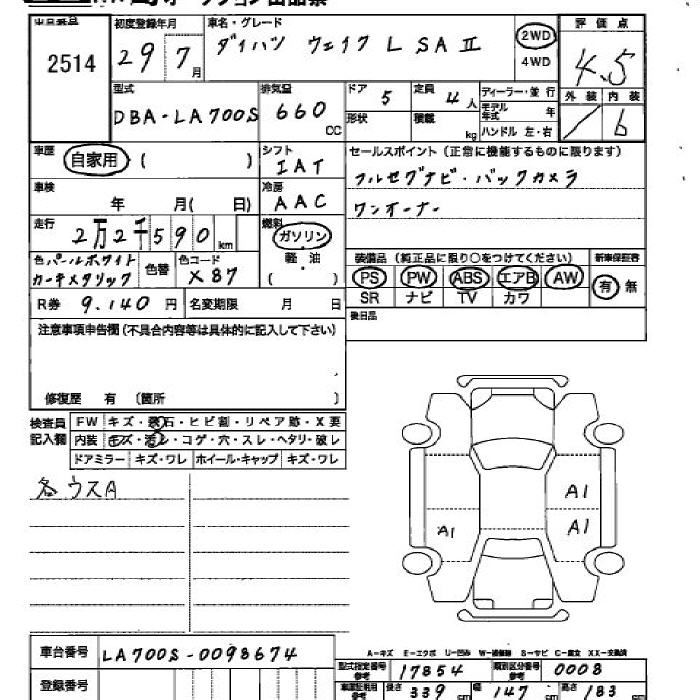 出品番号 2514
初度登録年月 29 7月
車名・グレード ダイハツ ウェイク L SAⅡ
2WD 4WD
評価点 4.5
外装 / 内装 b
型式 DBA-LA700S
排気量 660 CC
ドア 5
形状
定員 4人
積載 kg
ディーラー・並行
モデル年式 年
ハンドル 左・右
車歴 自家用 ( )
シフト IAT
セールスポイント (正常に機能するものに限ります)
フルセグナビ・バックカメラ
ワンオーナー
車検 年 月( 日)
冷房 AAC
走行 2万2千590km
燃料 ガソリン 軽・油 ( )
色 パールホワイト
カーキメタリック
色替
色コード X87
装備品 (純正品に限り○をつけてください)
PS PW ABS エアB AW
SR ナビ TV カワ
新車保証書 有 無
R券 9.140円
名変期限 月 日
後日品
注意事項申告欄 (不具合内容等は具体的に記入して下さい)
修復歴 有 〔箇所 〕
検査員記入欄
FW キズ・飛石・ヒビ割・リペア跡・X要
内装 キズ・汚レ・コゲ・穴・スレ・ヘタリ・破レ
ドアミラー キズ・ワレ ホイール・キャップ キズ・ワレ
各ウスA
A1
A1 A1
A-キズ E-エクボ U-凹み W-補修跡 S-サビ C-腐食 XX-交換済
車台番号 LA700S-0098674
型式指定番号 参考 17854
類別区分番号 参考 0008
登録番号
長さ 339 cm 幅 147 cm 高さ 183 cm